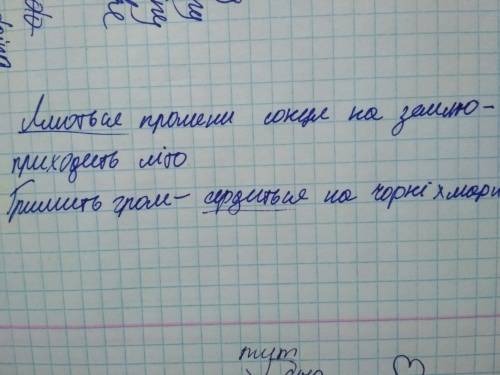 Ллються промени сонця на землю-
приходить літо
Гримить гром- сердиться на чорні хмари
тут